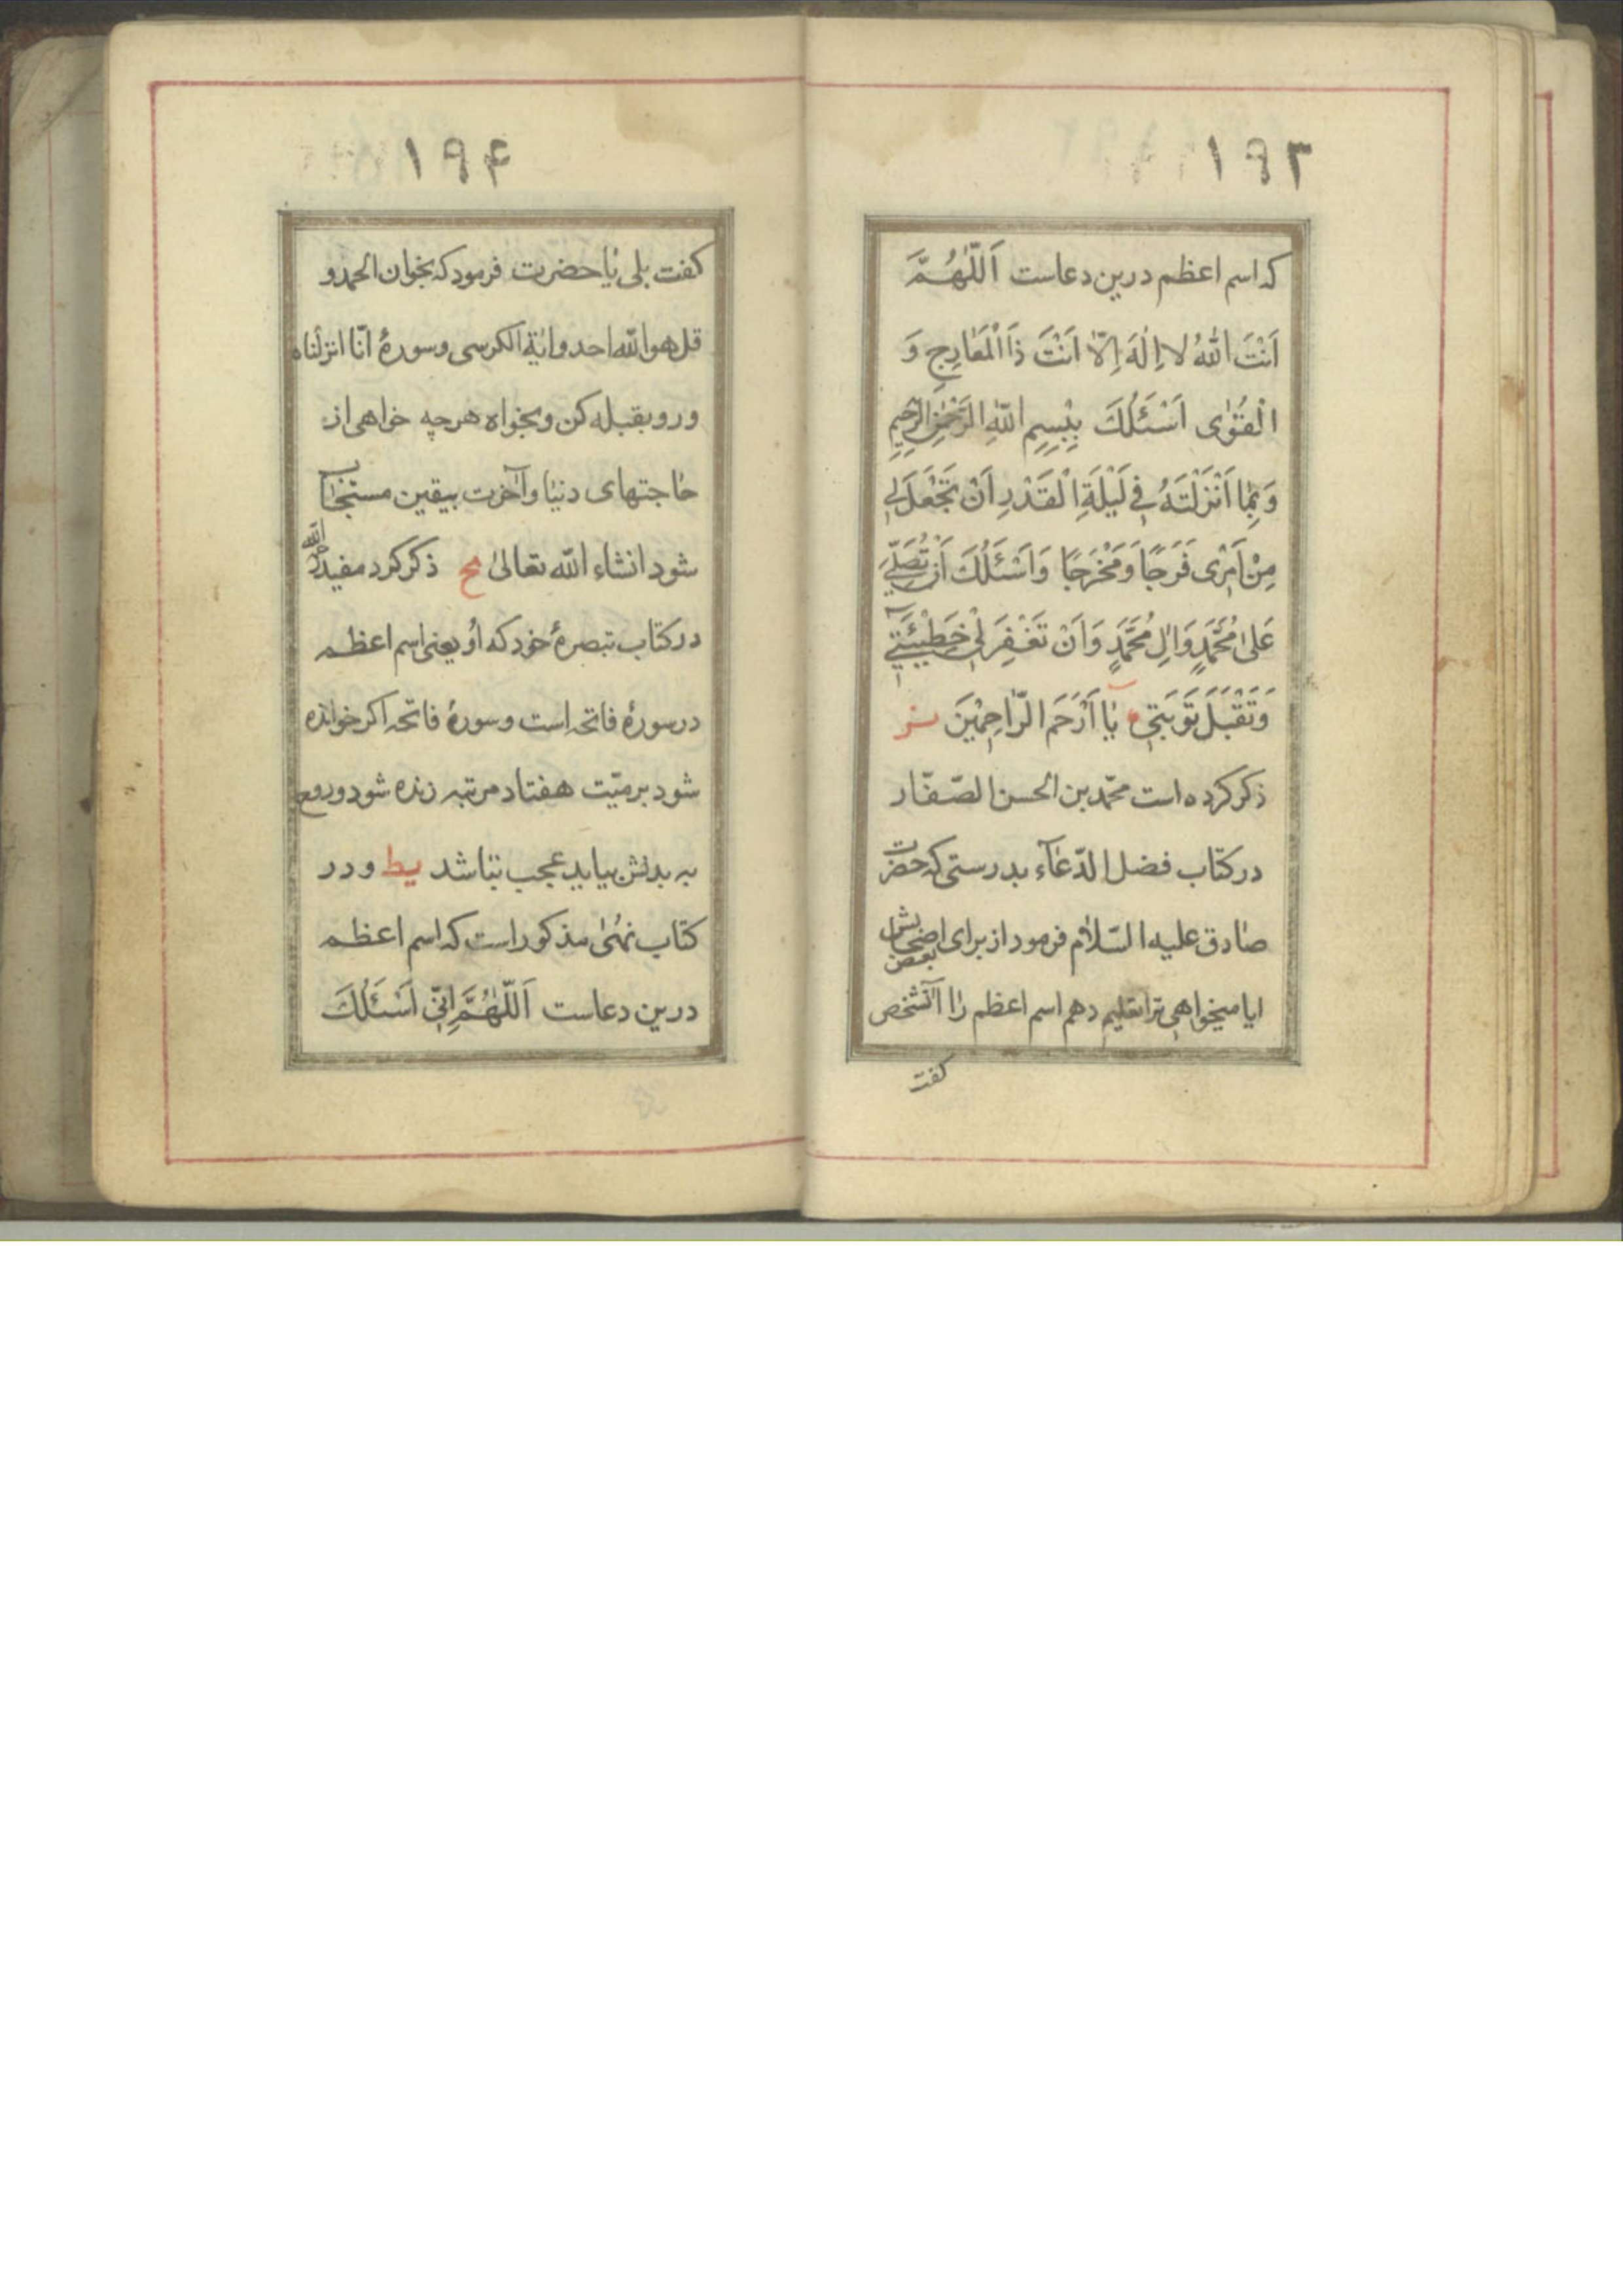 ۱۹۳
که اسم اعظم درین دعاست اَللّٰهُمَّ
اَنْتَ اللهُ لا اِلٰهَ اِلّا اَنْتَ ذَا الْمَعٰارِجِ وَ
الْقُوٰی اَسْئَلُكَ بِبِسْمِ اللّٰهِ الرَّحْمٰنِ الرَّحِیْمِ
وَ بِمٰا اَنْزَلْتَهُ فِی لَیْلَةِ الْقَدْرِ اَنْ تَجْعَلَ لِی
مِنْ اَمْرِی فَرَجًا وَ مَخْرَجًا وَ اَسْئَلُكَ اَنْ تُصَلِّیَ
عَلیٰ مُحَمَّدٍ وَ اٰلِ مُحَمَّدٍ وَ اَنْ تَغْفِرَ لِی خَطِیْئَتِی
وَ تَقْبَلَ تَوْبَتِی یٰا اَرْحَمَ الرّٰاحِمِیْنَ
ذکر کرده است محمّد بن الحسن الصّفّار
در کتاب فضل الدّعٰآء بدرستی که حضرت
صٰادق علیه السّلاٰم فرمود از برای بعض اصحٰابش
ایا میخواهی ترا تعلیم دهم اسم اعظم رٰا آنشخص
کفت
۱۹۴
کفت بلی یٰا حضرت فرمود که بخوان الحمد و
قل هو اللّه احد و ایٰة الکرسی و سورهٔ انّا انزلناه
و رو بقبله کن و بخواه هرچه خواهی از
حٰاجتهای دنیٰا و آخرت بیقین مستجٰاب
شود انشاء اللّه تعالیٰ یح ذکر کرد مفید ره
در کتاب تبصرهٔ خود که اُو یعنی اسم اعظم
در سورهٔ فاتحه است و سورهٔ فاتحه اکر خوانده
شود بر میّت هفتاد مرتبه زنده شود و روح
به بدنش بیاید عجب نباشد یط و در
کتاب نُهیٰ مذکور است که اسم اعظم
درین دعاست اَللّٰهُمَّ اِنّی اَسْئَلُكَ